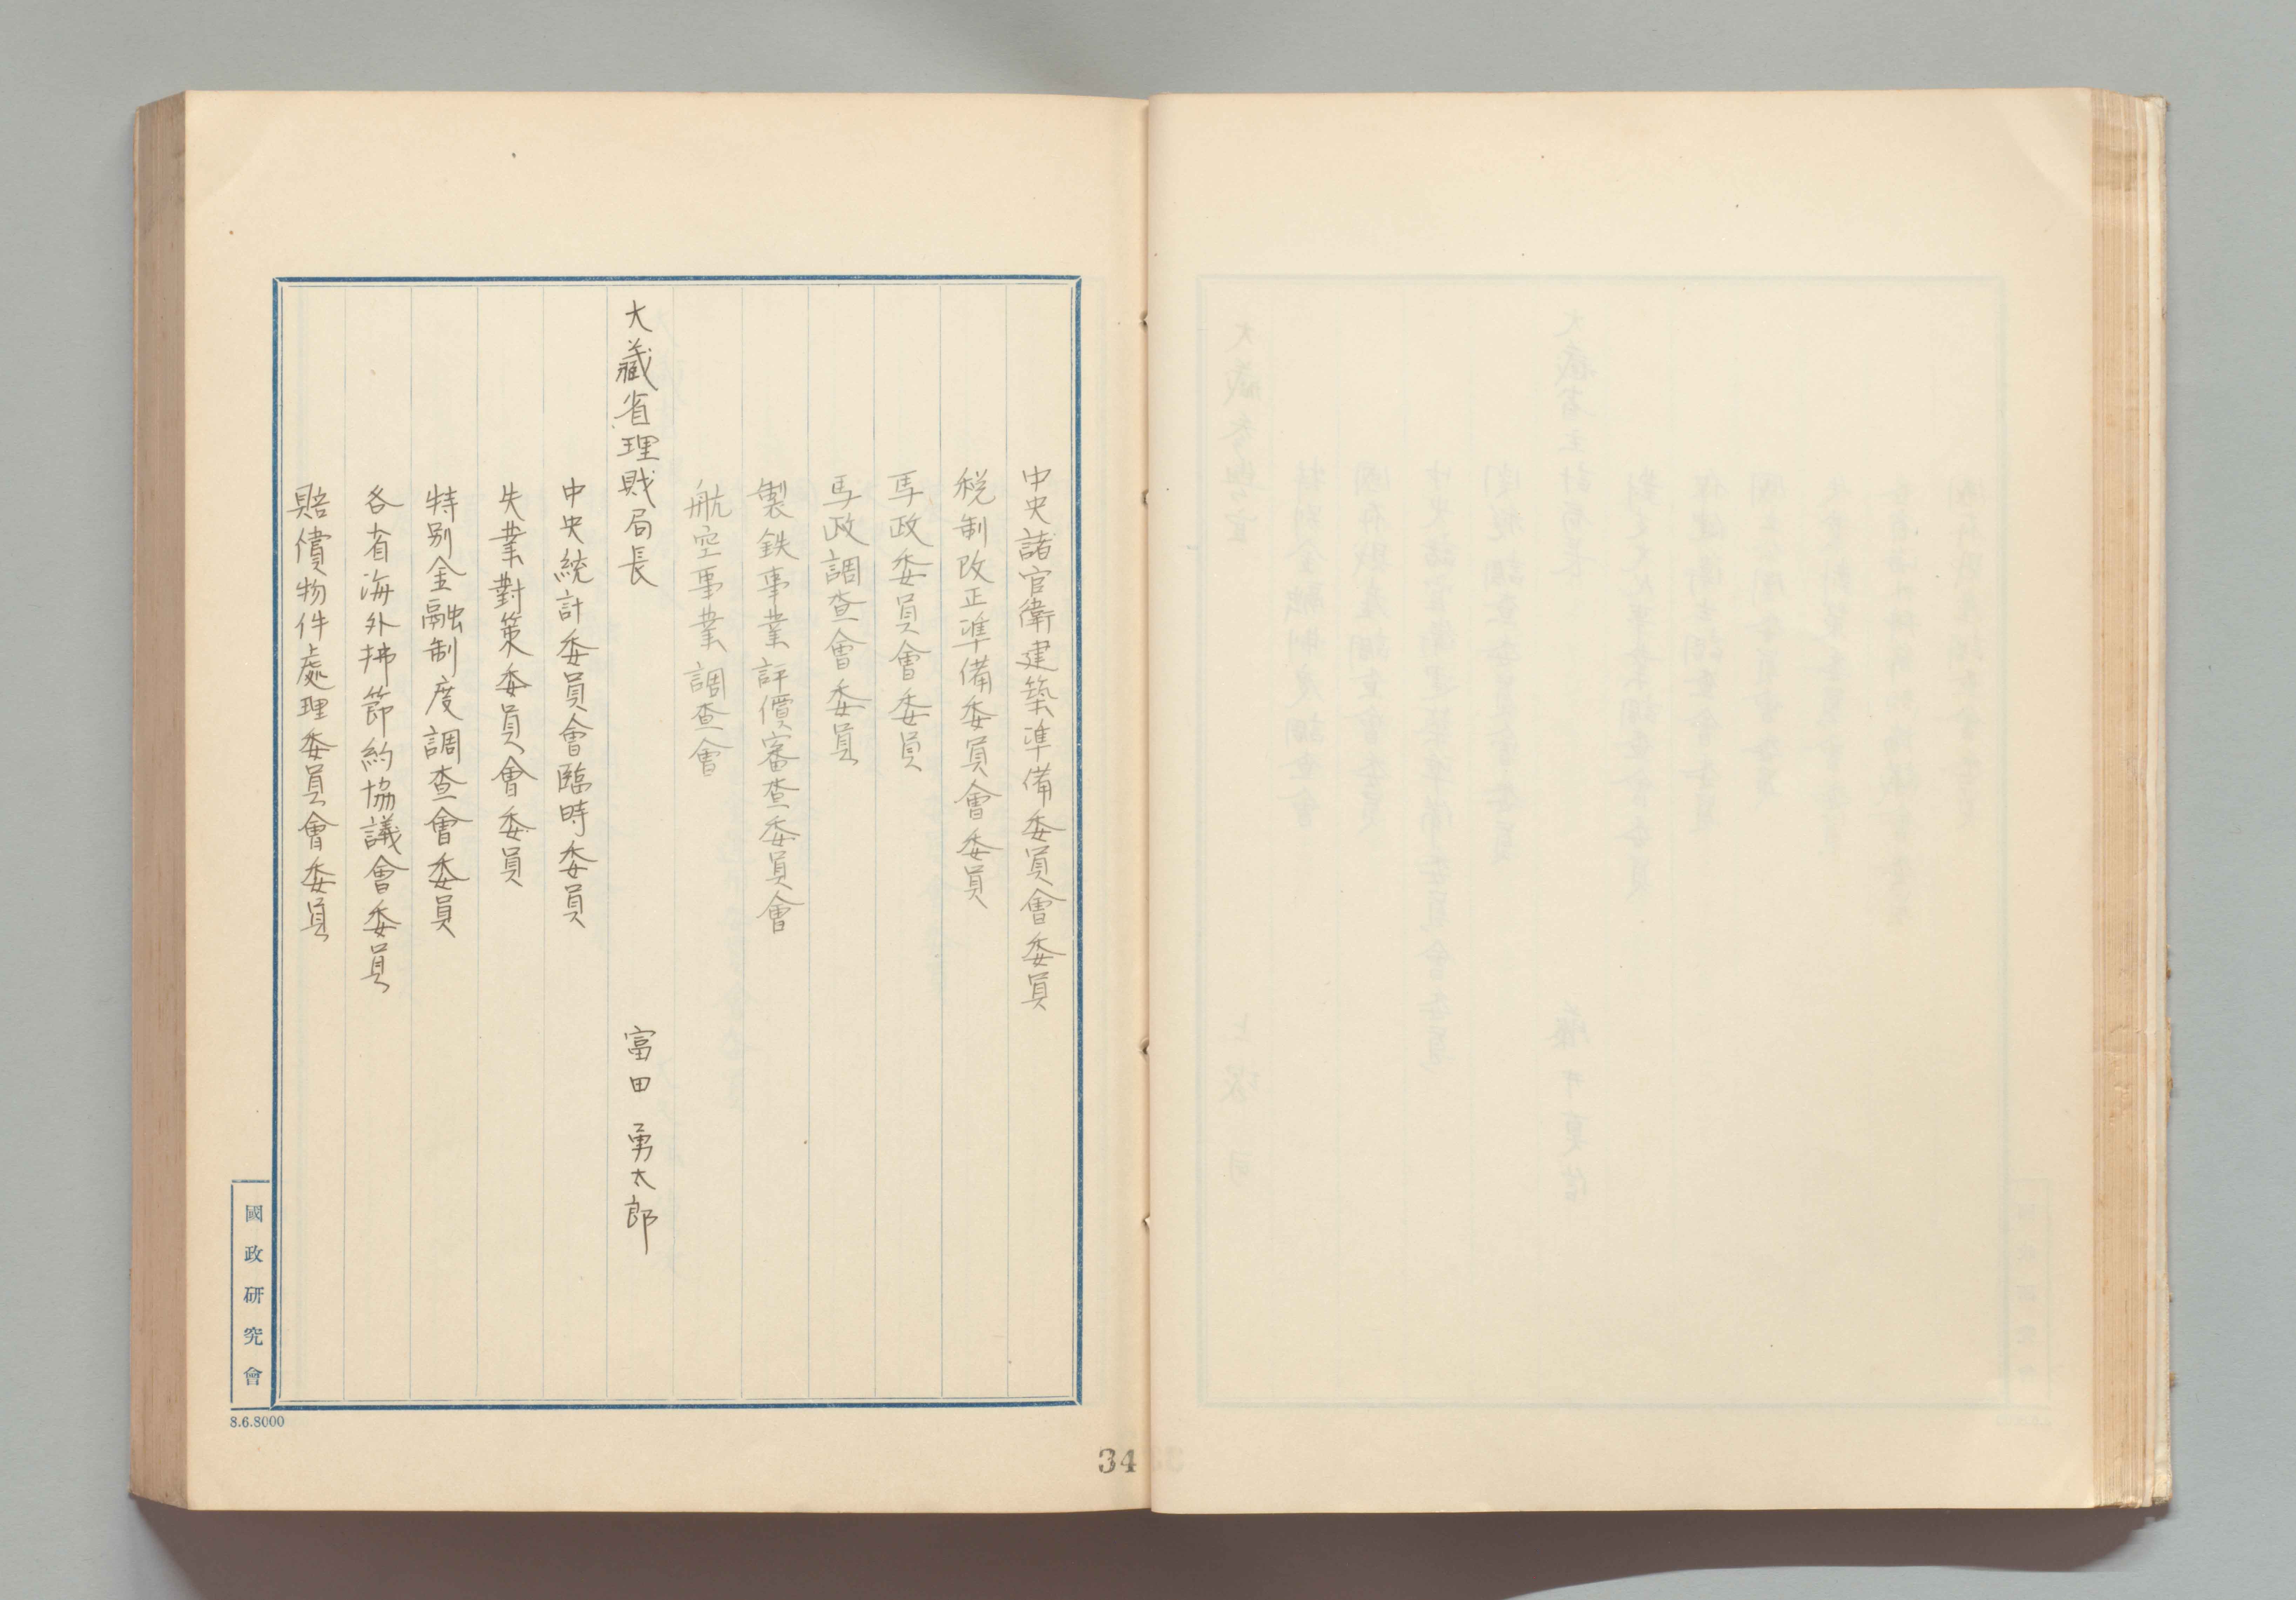 中央諸官衙建築準備委員會委員
税制改正準備委員會委員
馬政委員會委員
馬政調查會委員
製鉄事業評價審查委員會
航空事業調查會
大藏省理財局長 富田勇太郎
中央統計委員會臨時委員
失業對策委員會委員
特別金融制度調查會委員
各省海外拂節約協議會委員
賠償物件處理委員會委員
國政研究會
8.6.8000
34